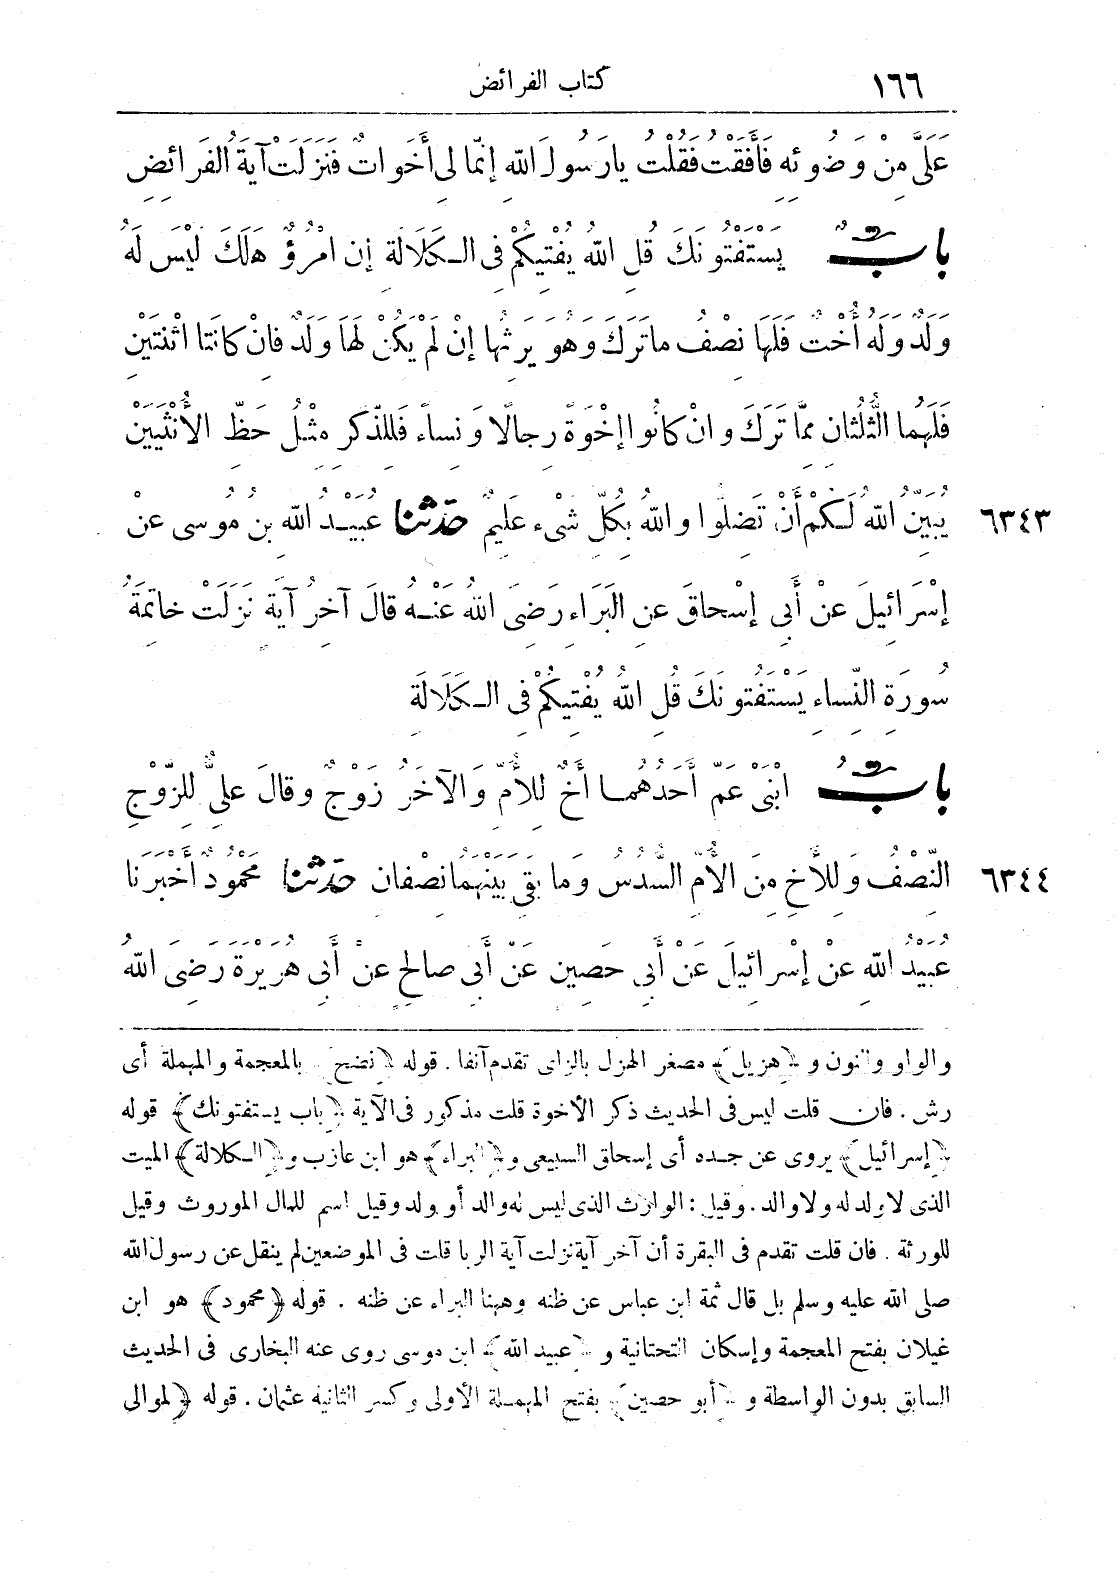 ١٦٦ كتاب الفرائض
عَلَىَّ مِنْ وَضُوئِهِ فَأَفَقْتُ فَقُلْتُ يارَسُولَ اللهِ إِنَّمَا لِى أَخَوَاتٌ فَنَزَلَتْ آيَةُ الفَرَائِضِ
بابٌ يَسْتَفْتُونَكَ قُلِ اللهُ يُفْتِيكُمْ فِى الكَلَالَةِ إِنِ امْرُؤٌ هَلَكَ لَيْسَ لَهُ
وَلَدٌ وَلَهُ أُخْتٌ فَلَهَا نِصْفُ ماتَرَكَ وَهُوَ يَرِثُها إِنْ لَمْ يَكُنْ لَهَا وَلَدٌ فَانْ كانَتا اثْنَتَيْنِ
فَلَهُما الثُّلُثانِ مِمَّا تَرَكَ وانْ كانُوا إِخْوَةً رِجالًا وَنِساءً فَلِلذَّكَرِ مِثْلُ حَظِّ الأُنْثَيَيْنِ
٦٣٤٣ يُبَيِّنُ اللهُ لَكُمْ أَنْ تَضِلُّوا واللهُ بِكُلِّ شَىْءٍ عَلِيمٌ حدّثنا عُبَيْدُ اللهِ بنُ مُوسى عنْ
إِسْرَائِيلَ عنْ أَبِى إِسْحاقَ عنِ البَرَاءِ رَضِىَ اللهُ عَنْهُ قالَ آخِرُ آيَةٍ نَزَلَتْ خاتِمَةُ
سُورَةِ النِّساءِ يَسْتَفْتُونَكَ قُلِ اللهُ يُفْتِيكُمْ فِى الكَلَالَةِ
بابُ ابْنَىْ عَمٍّ أَحَدُهُما أَخٌ لِلأُمِّ وَالآخَرُ زَوْجٌ وقالَ عَلِىٌّ لِلزَّوْجِ
٦٣٤٤ النِّصْفُ وَلِلأَخِ مِنَ الأُمِّ السُّدُسُ وَما بَقِىَ بَيْنَهُمَا نِصْفانِ حدّثنا مَحْمُودٌ أَخْبَرَنا
عُبَيْدُ اللهِ عنْ إِسْرَائِيلَ عَنْ أَبِى حَصِينٍ عَنْ أَبِى صالِحٍ عنْ أَبِى هُرَيْرَةَ رَضِىَ اللهُ
والواو والنون و ﴿هزيل﴾ مصغر الهزل بالزاى تقدم آنفا . قوله ﴿نضح﴾ بالمعجمة والمهملة أى
رش . فان قلت ليس فى الحديث ذكر الأخوة قلت مذكور فى الآية ﴿باب يستفتونك﴾ قوله
﴿إسرائيل﴾ يروى عن جده أى إسحاق السبيعى و ﴿البراء﴾ هو ابن عازب و ﴿الكلالة﴾ الميت
الذى لا ولد له ولا والد . وقيل : الوارث الذى ليس له والد أو ولد وقيل اسم للمال الموروث وقيل
للورثة . فان قلت تقدم فى البقرة أن آخر آية نزلت آية الربا قلت فى الموضعين لم ينقل عن رسول الله
صلى الله عليه وسلم بل قال ثمة ابن عباس عن ظنه وههنا البراء عن ظنه . قوله ﴿محمود﴾ هو ابن
غيلان بفتح المعجمة وإسكان التحتانية و ﴿عبيد الله﴾ ابن موسى روى عنه البخارى فى الحديث
السابق بدون الواسطة و ﴿أبو حصين﴾ بفتح المهملة الأولى وكسر الثانية عثمان . قوله ﴿لموالى